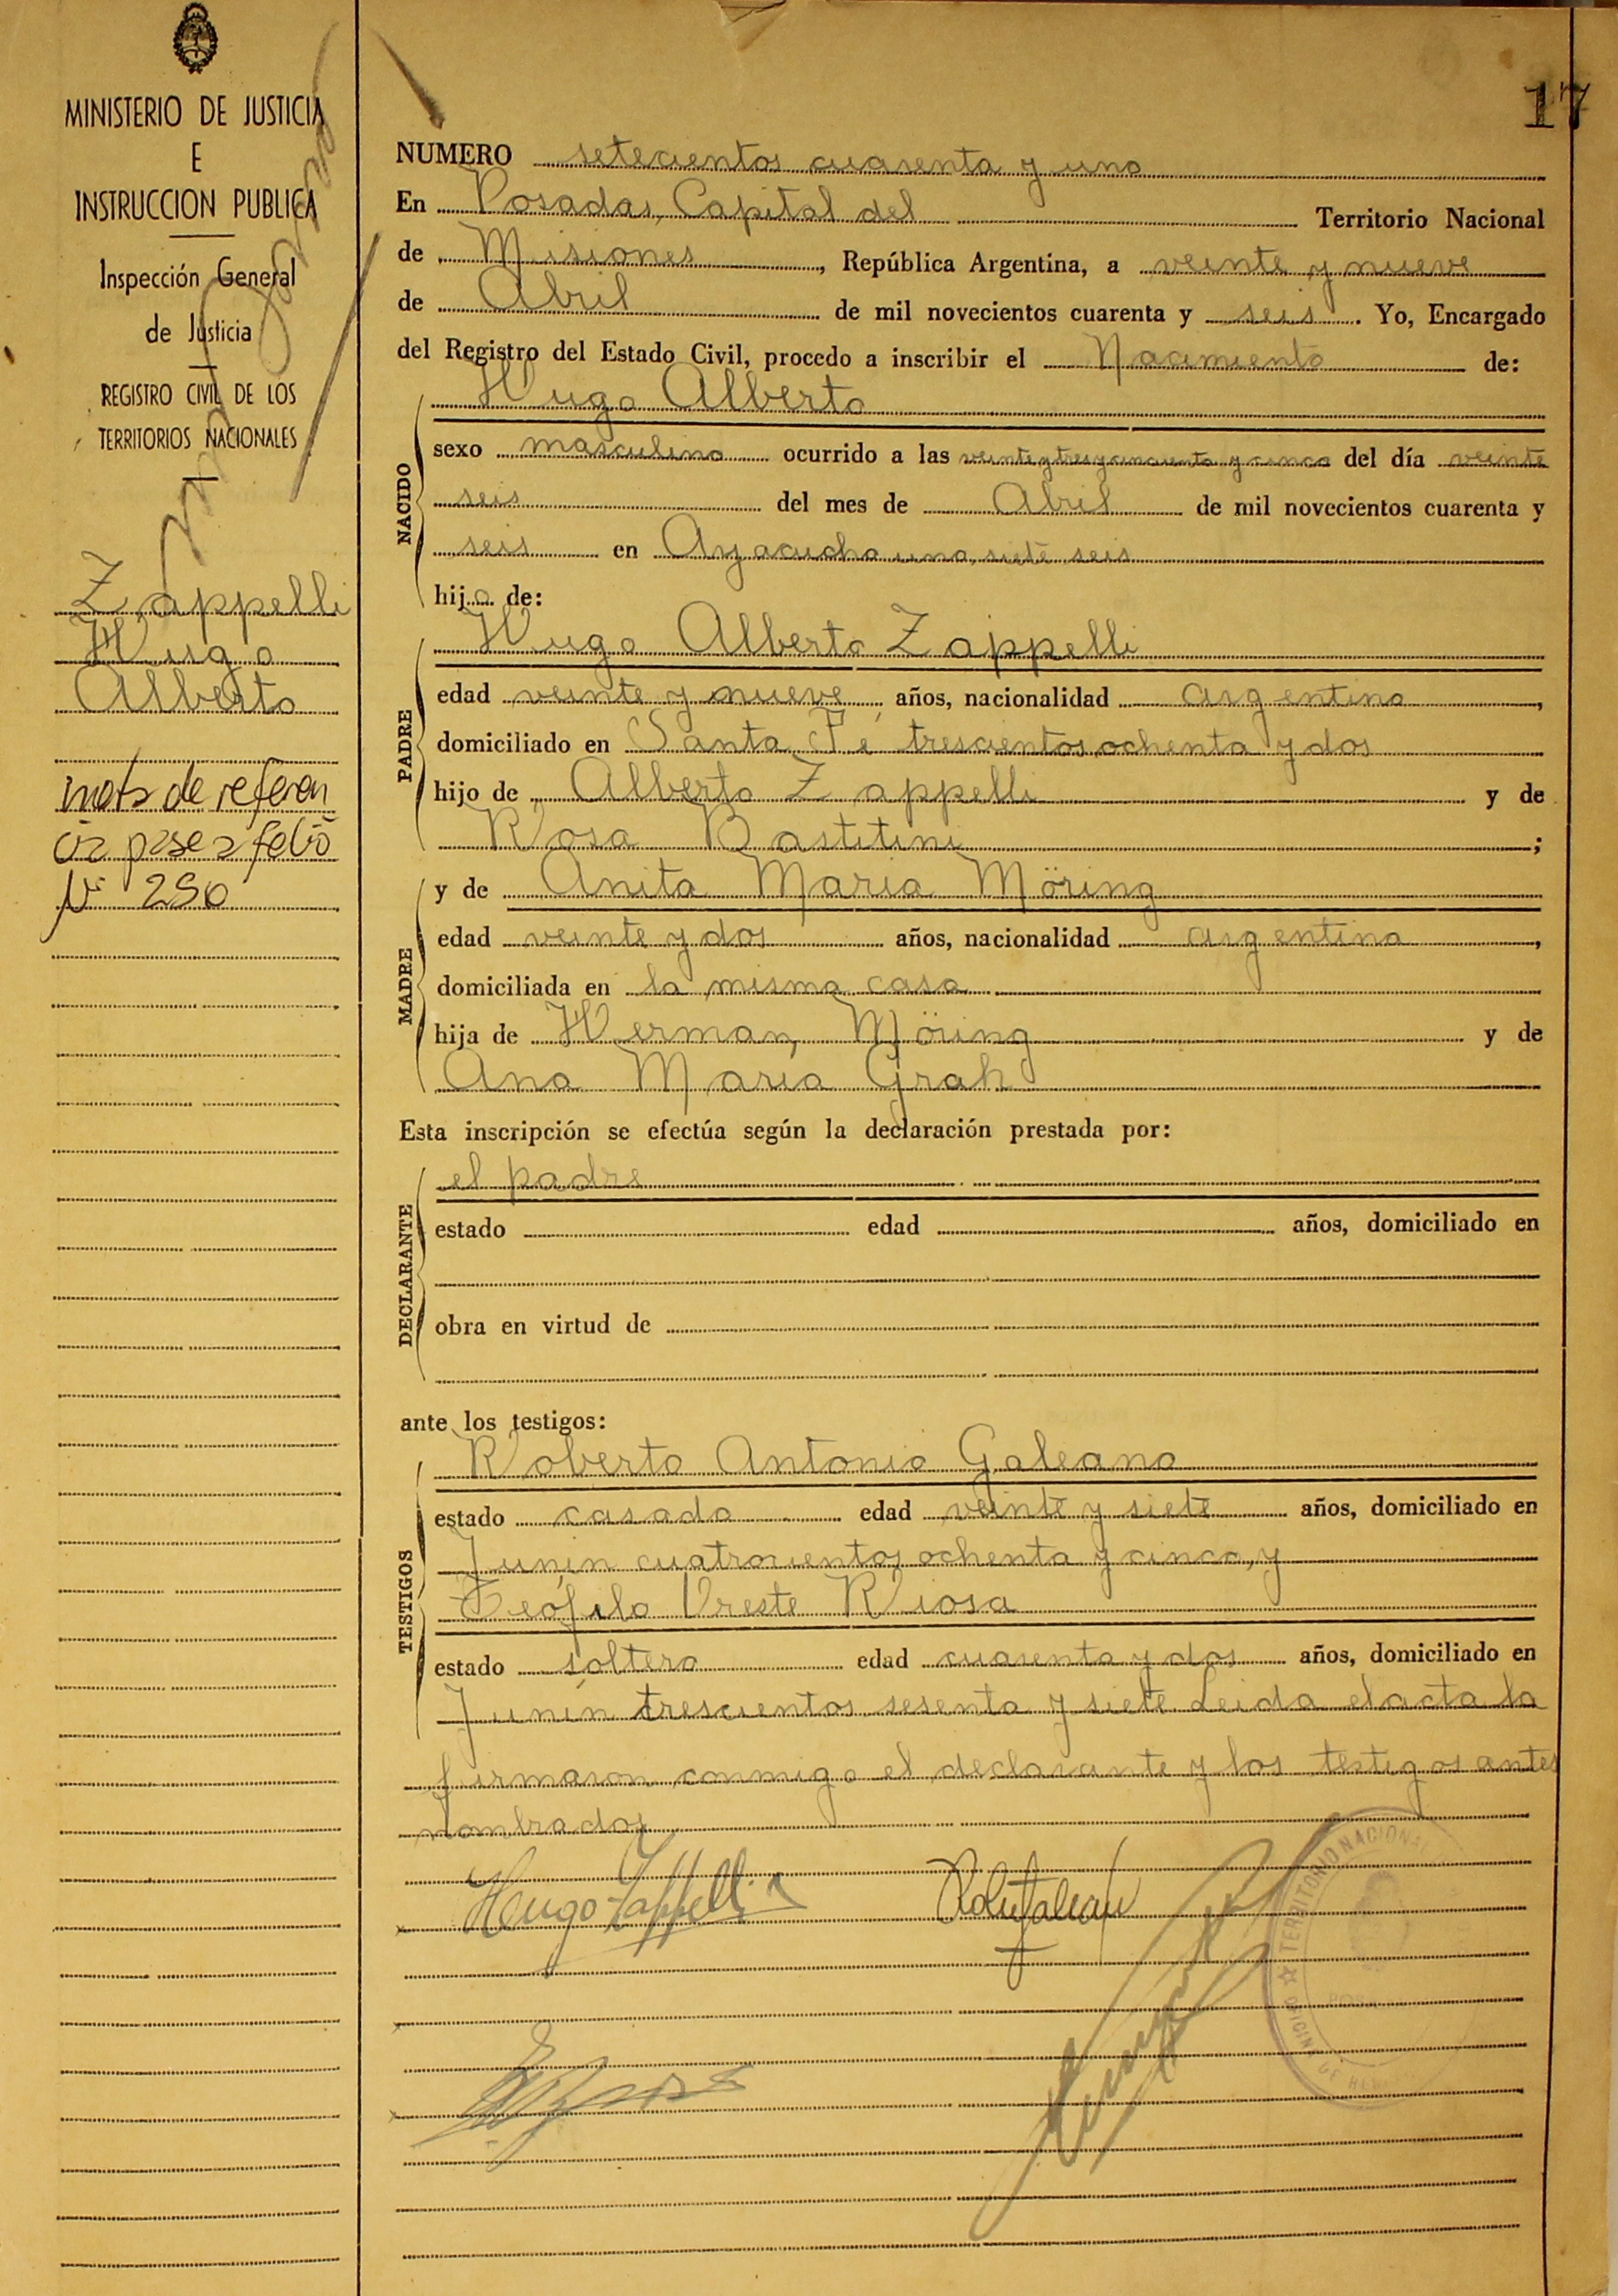 MINISTERIO DE JUSTICIA
E
INSTRUCCION PUBLICA
Inspección General
de Justicia
REGISTRO CIVIL DE LOS
TERRITORIOS NACIONALES
Zappelli
Hugo
Alberto
nota de referen
cia pase a folio
Nº 290
17
NUMERO setecientos cuarenta y uno
En Posadas, Capital del Territorio Nacional
de Misiones, República Argentina, a veinte y nueve
de Abril de mil novecientos cuarenta y seis. Yo, Encargado
del Registro del Estado Civil, procedo a inscribir el Nacimiento de:
Hugo Alberto
NACIDO
sexo masculino ocurrido a las veinte y tres y cincuenta y cinco del día veinte
seis del mes de Abril de mil novecientos cuarenta y
seis en Ayacucho uno, siete seis
hijo de:
PADRE
Hugo Alberto Zappelli
edad veinte y nueve años, nacionalidad argentino,
domiciliado en Santa Fé trescientos ochenta y dos
hijo de Alberto Zappelli y de
Rosa Bastitini;
MADRE
y de Anita Maria Möring
edad veinte y dos años, nacionalidad argentina,
domiciliada en la misma casa
hija de Herman Möring y de
Ana Maria Grah
Esta inscripción se efectúa según la declaración prestada por:
DECLARANTE
el padre
estado edad años, domiciliado en
obra en virtud de
ante los testigos:
TESTIGOS
Roberto Antonio Galeano
estado casado edad veinte y siete años, domiciliado en
Junin cuatrocientos ochenta y cinco, y
Teófilo Oreste Riosa
estado soltero edad cuarenta y dos años, domiciliado en
Junín trescientos sesenta y siete Leida el acta la
firmaron conmigo el declarante y los testigos antes
nombrados
Hugo Zappelli
TERRITORIO NACIONAL
OFICINA DE